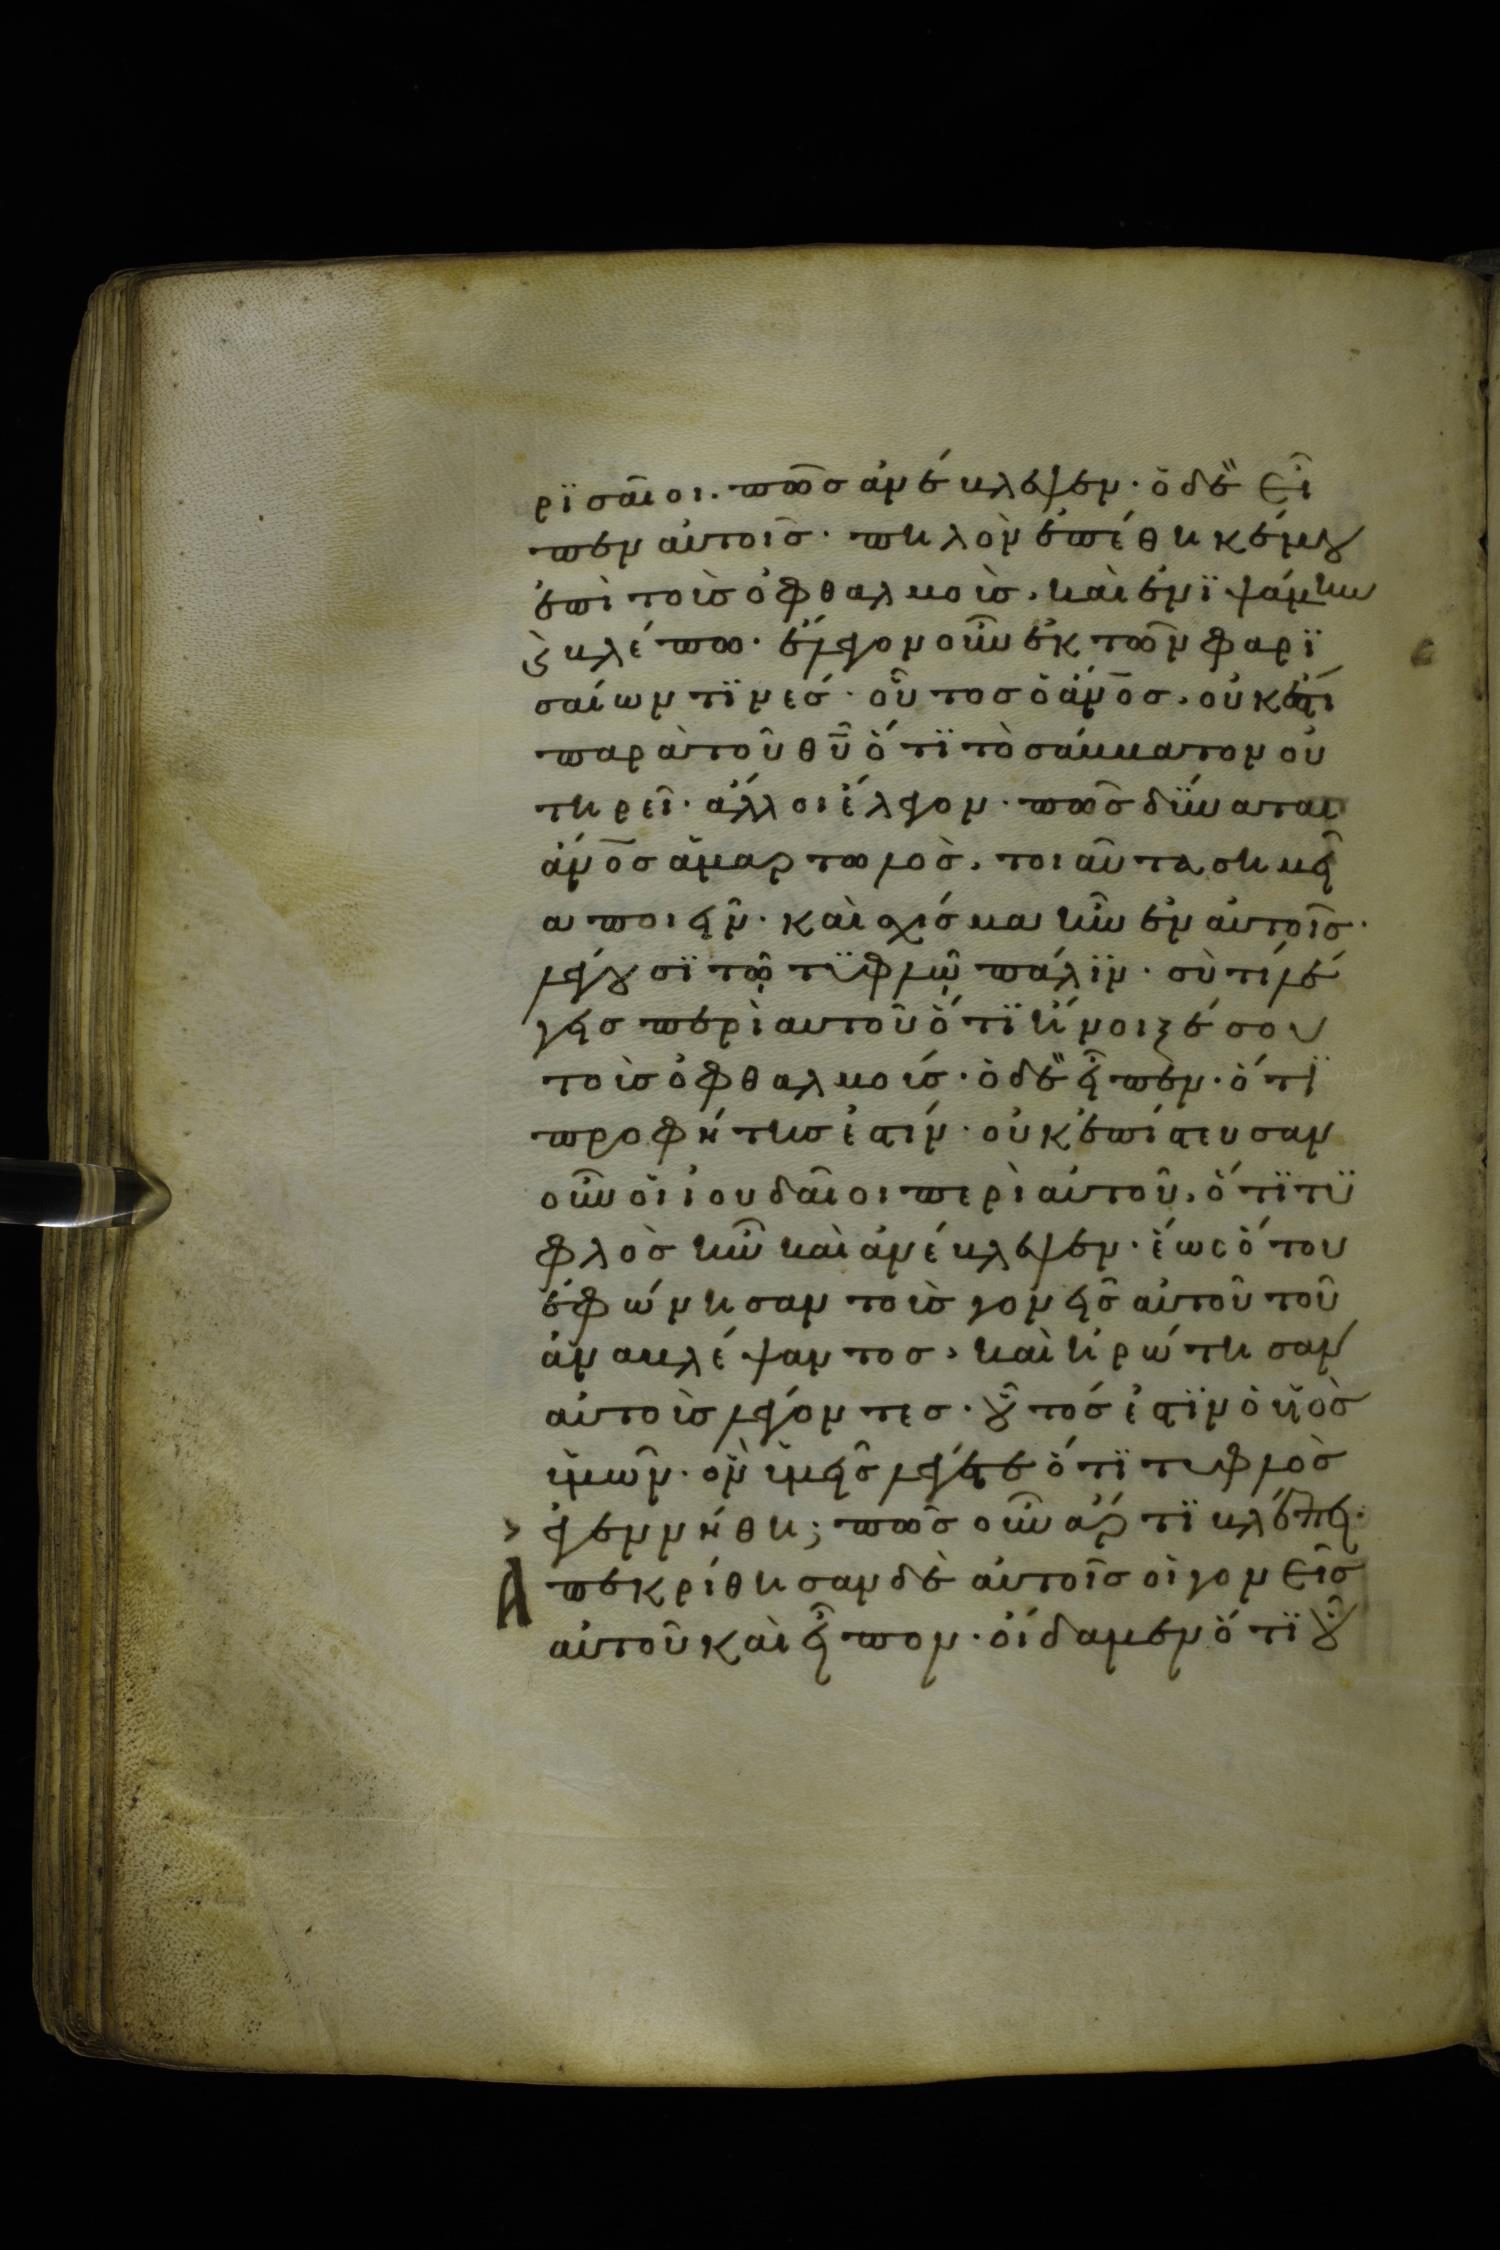 ρϊσαῖοι. πῶσ ἀνέβλεψεν· ὁ δὲ εἶ
πεν αὐτοῖσ· πηλὸν ἐπέθηκέ μου
ἐπὶ τοὺσ ὀφθαλμοὺσ, καὶ ἐνϊψάμην
ϗ βλέπω· ἔλεγον οὖν ἐκ τῶν φαρϊ
σαίων τϊνέσ· οὗτοσ ὁ ἄνοσ, οὐκ ἔστι
παρὰ τοῦ θῦ ὅτϊ τὸ σάββατον οὐ
τηρεῖ· ἄλλοι ἔλεγον· πῶσ δύναται
ἄνοσ ἁμαρτωλὸσ, τοιαῦτα σημεῖ
α ποιεῖν· καὶ σχίσμα ἦν ἐν αὐτοῖσ·
λέγουσϊ τῶ τϋφλῶ πάλϊν· σὺ τί λέ
γεισ περὶ αυτοῦ ὅτϊ ἤνοιξέ σου
τοὺσ ὀφθαλμούσ· ὁ δὲ εἶπεν· ὅτϊ
προφήτησ ἐστίν· οὐκ ἐπίστευσαν
οὖν οἱ ἰουδαῖοι περὶ αὐτοῦ, ὅτϊ τϋ
φλὸσ ἦν καὶ ἀνέβλεψεν· ἕωσ ὅτου
ἐφώνησαν τοὺσ γονεῖσ αὐτοῦ τοῦ
ἀναβλέψαντοσ, καὶ ἠρώτησαν
αὐτοὺσ λέγοντεσ· οὗτόσ ἐστϊν ὁ υἱὸσ
ὑμῶν· ὃν ὑμεῖσ λέγετε ὅτϊ τυφλὸσ
ἐγεννήθη; πῶσ οὖν ἄρτϊ βλέπει·
Απεκρίθησαν δὲ αὐτοῖσ οἱ γονεῖσ
αὐτοῦ καὶ εἶπον· οἴδαμεν ὅτϊ οὗ